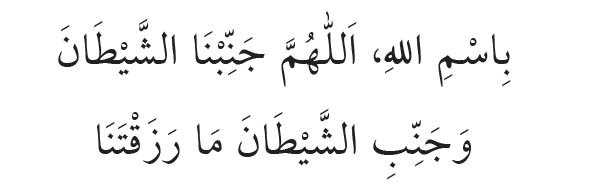 بِاسْمِ اللهِ، اَللّٰهُمَّ جَنِّبْنَا الشَّيْطَانَ
وَجَنِّبِ الشَّيْطَانَ مَا رَزَقْتَنَا